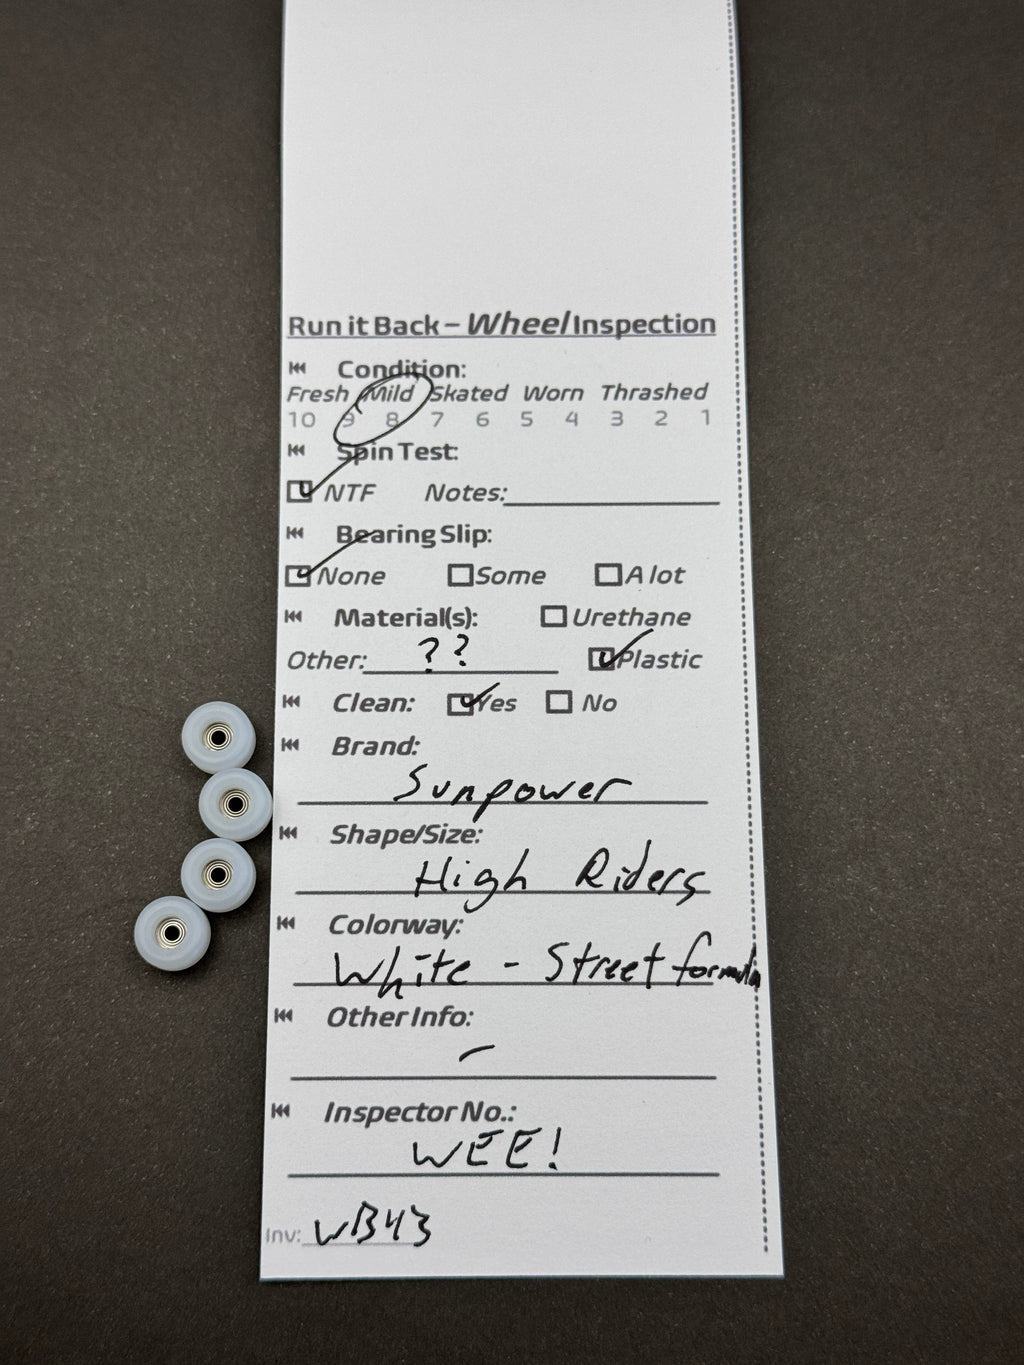 Run it Back – Wheel Inspection
Condition:
Fresh Mild Skated Worn Thrashed
10 9 8 7 6 5 4 3 2 1
Spin Test:
NTF Notes:
Bearing Slip:
None Some A lot
Material(s): Urethane
Other: ?? Plastic
Clean: Yes No
Brand:
Sunpower
Shape/Size:
High Riders
Colorway:
White - Street formula
Other Info:
-
Inspector No.:
WEE!
Inv: WB43